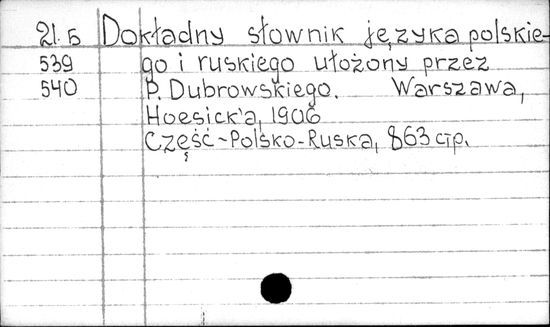 21.5 Dokładny słownik języka polskie-
539 go i ruskiego ułożony przez
540 P. Dubrowskiego. Warszawa,
Hoesick'a, 1906
Część-Polsko-Ruska, 863 стр.